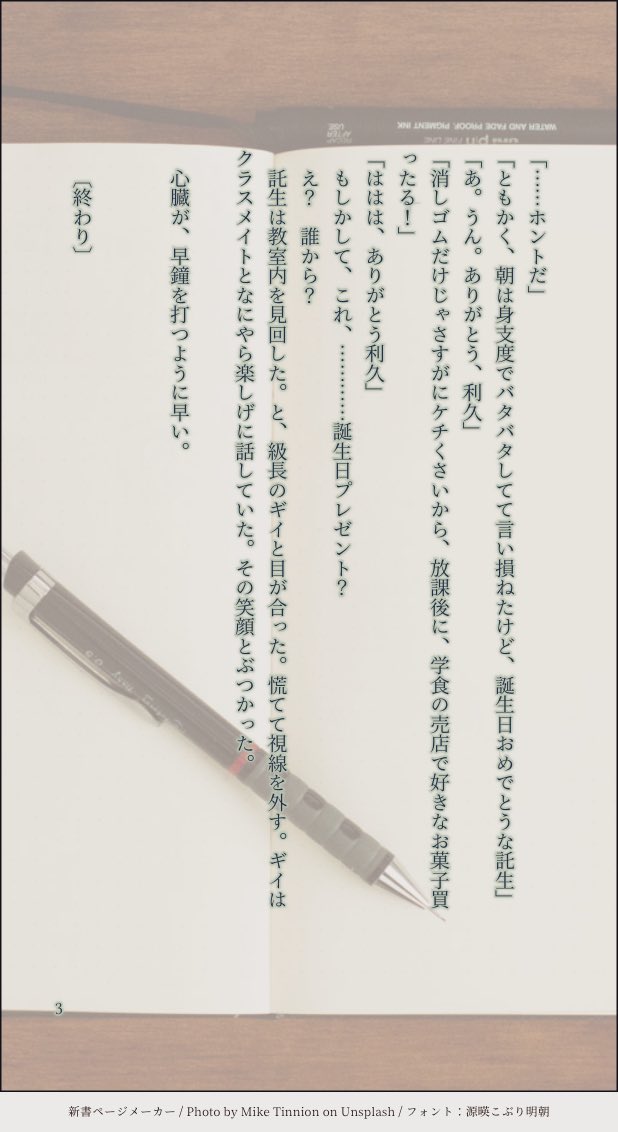 「……ホントだ」
「ともかく、朝は身支度でバタバタしてて言い損ねたけど、誕生日おめでとうな託生」
「あ。うん。ありがとう、利久」
「消しゴムだけじゃさすがにケチくさいから、放課後に、学食の売店で好きなお菓子買
ったる！」
「ははは、ありがとう利久」
もしかして、これ、…………誕生日プレゼント？
え？　誰から？
託生は教室内を見回した。と、級長のギイと目が合った。慌てて視線を外す。ギイは
クラスメイトとなにやら楽しげに話していた。その笑顔とぶつかった。
心臓が、早鐘を打つように早い。
〔終わり〕
3
WATER AND FADE PROOF, PIGMENT INK
pin FINE LINE
RECAP
AFTER
USE
新書ページメーカー / Photo by Mike Tinnion on Unsplash / フォント：源暎こぶり明朝